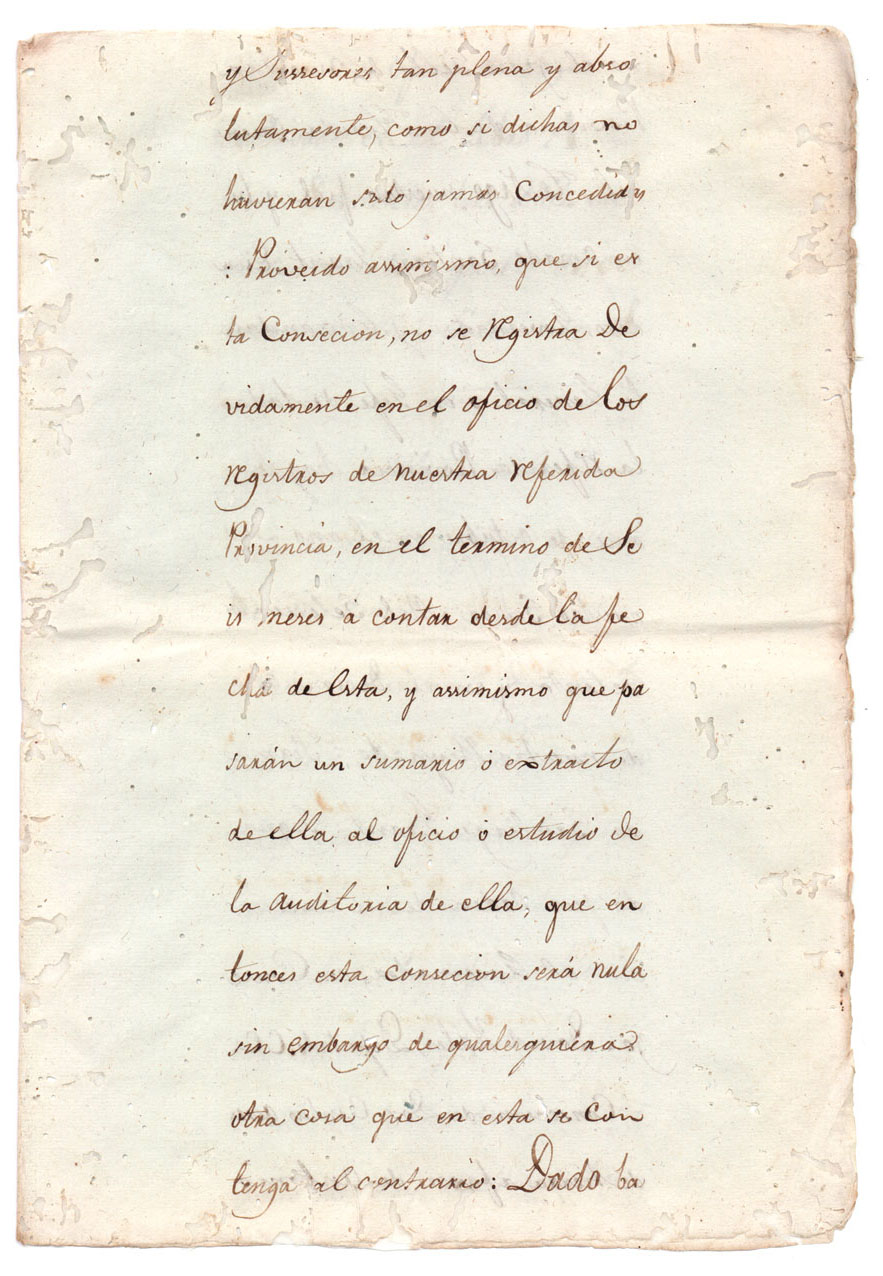 y Sussesores tan plena y abso
lutamente, como si dichas no
huvieran sido jamas Concedidas
: Proveido assimismo, que si es
ta Consecion, no se registra De
vidamente en el oficio de los
registros de nuestra referida
Provincia, en el termino de Se
is meses à contar desde la fe
cha de Esta, y assimismo que pa
sarán un sumario o extracto
de ella al oficio o estudio de
la Auditoria de ella, que en
tonces esta consecion será nula
sin embargo de qualesquiera
otra cosa que en esta se con
tenga al contrario: Dado ba